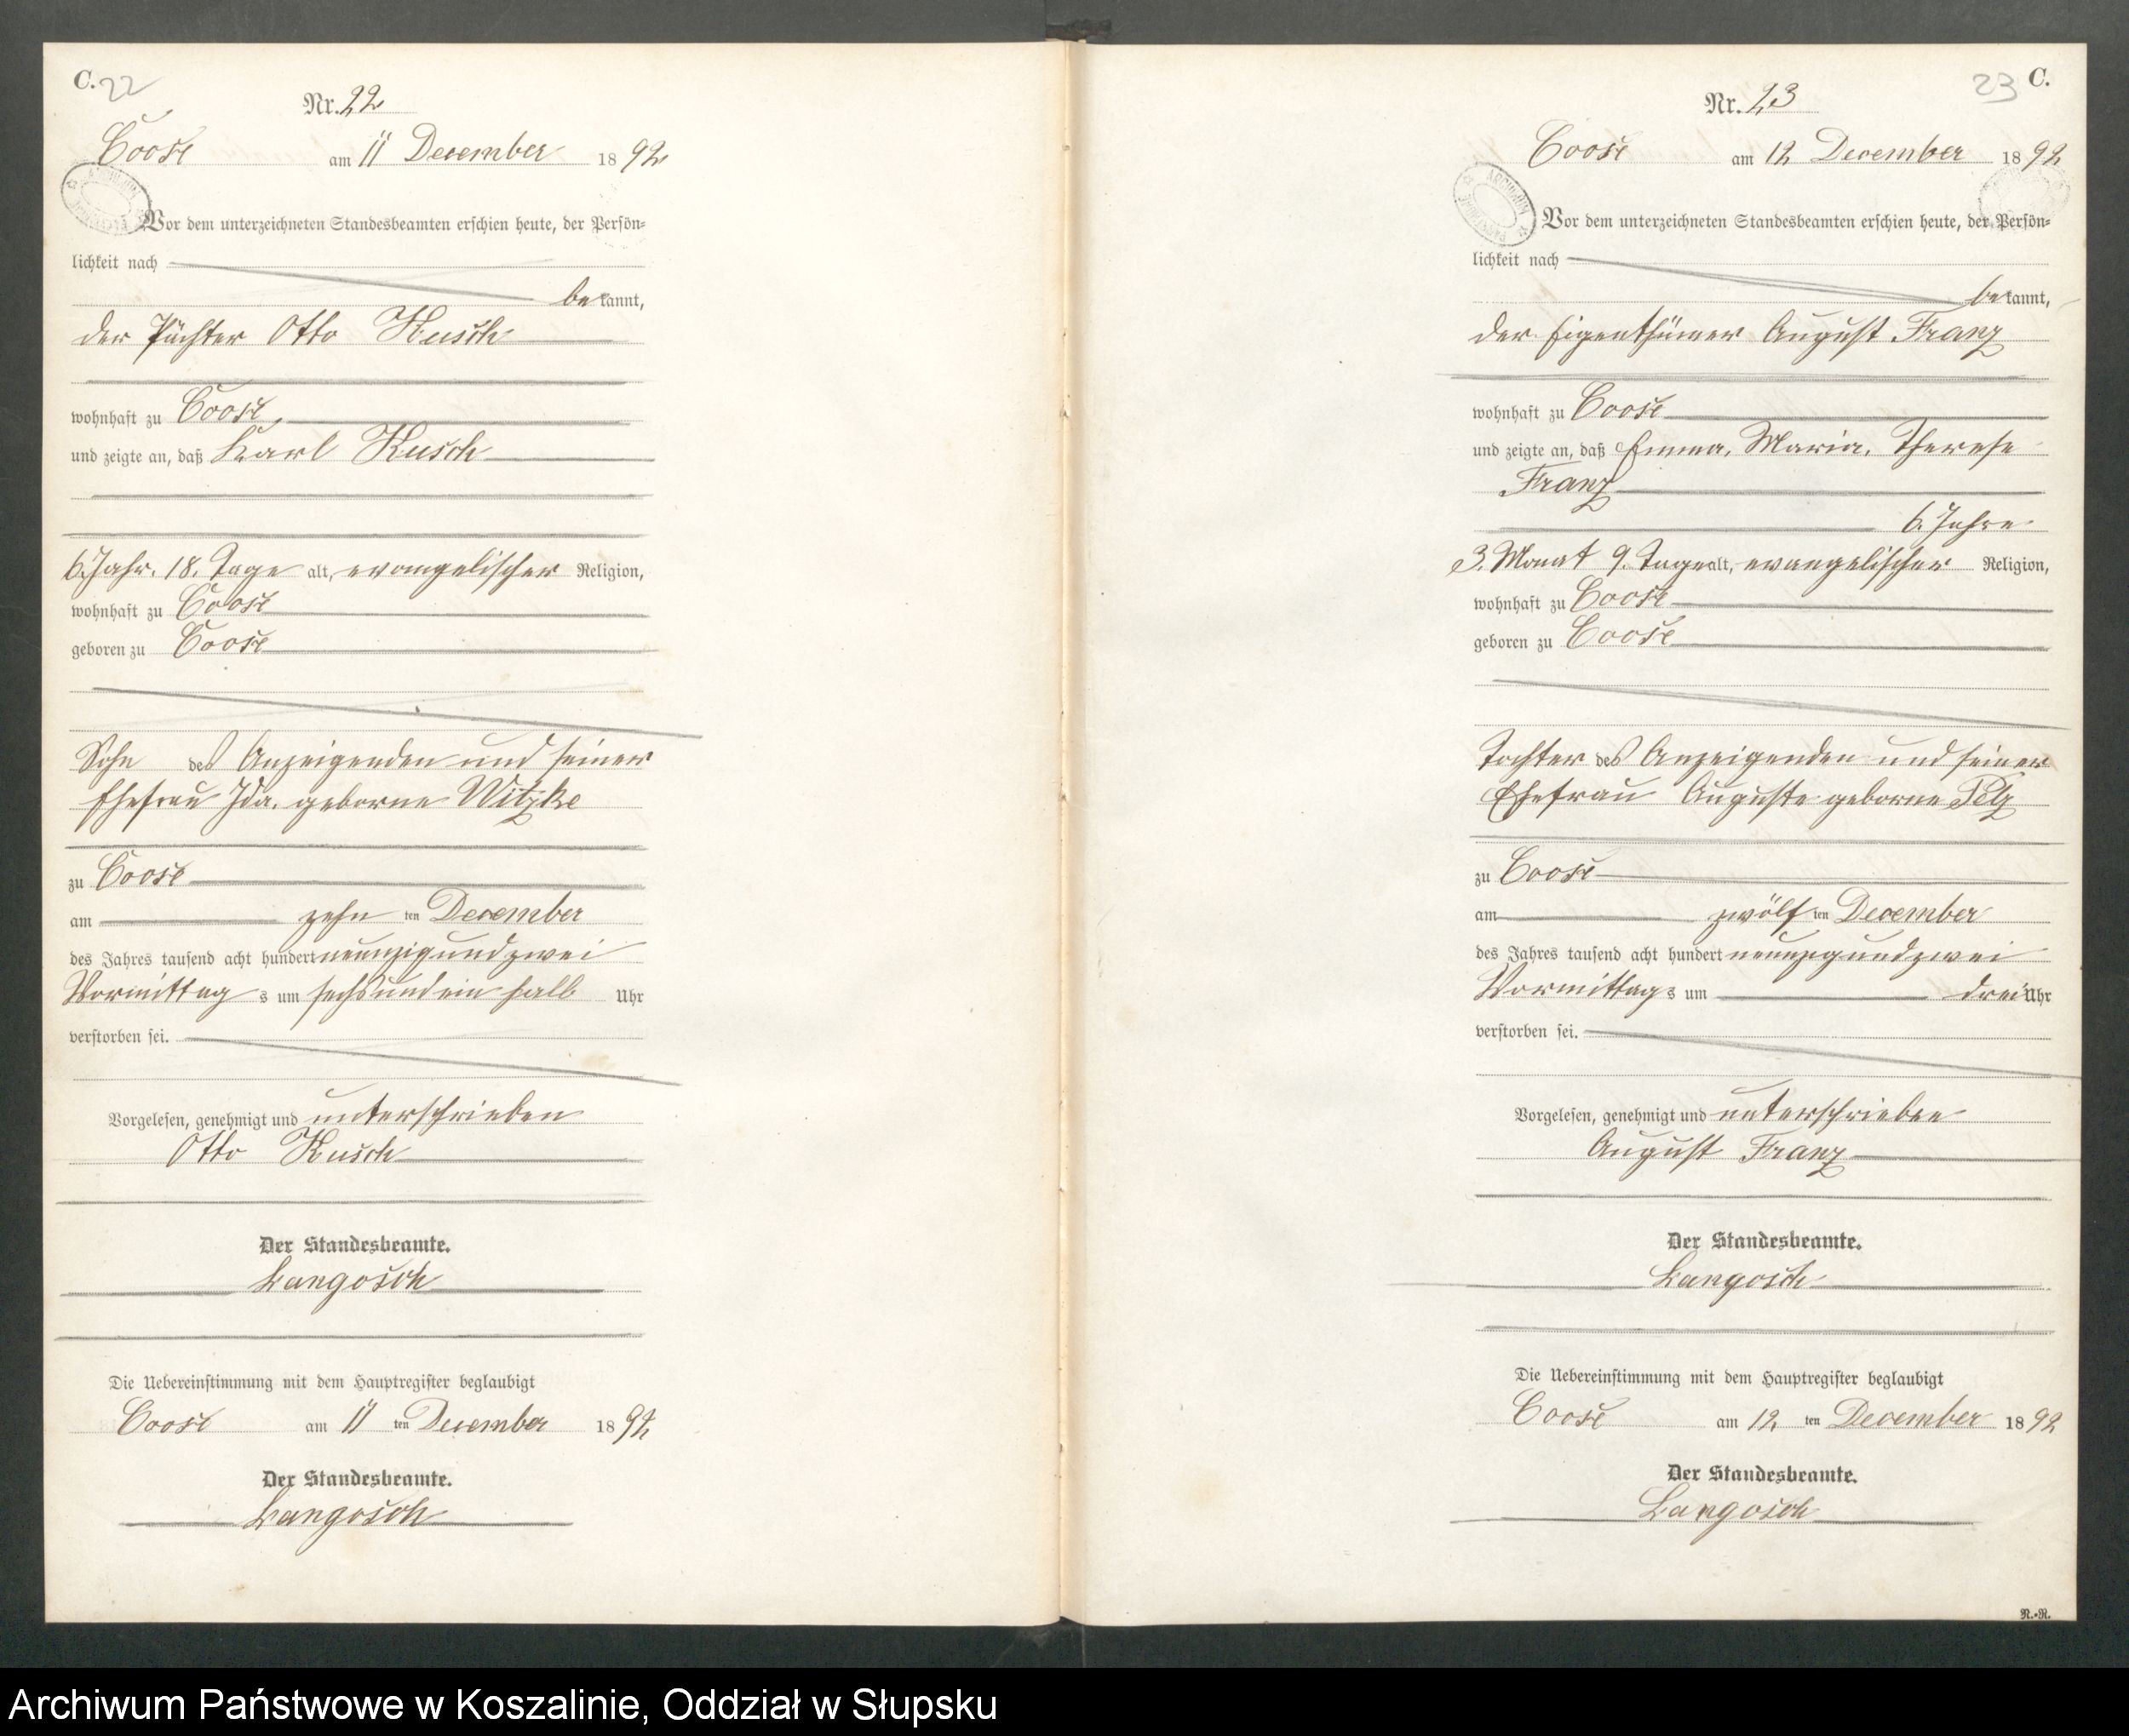 C. 22
Nr. 22
Coose am 11 December 1892
Vor dem unterzeichneten Standesbeamten erschien heute, der Persön-
lichkeit nach
bekannt,
der Pächter Otto Kusch
wohnhaft zu Coose,
und zeigte an, daß Karl Kusch
6. Jahr. 18. Tage alt, evangelischer Religion,
wohnhaft zu Coose
geboren zu Coose
Sohn des Anzeigenden und seiner
Ehefrau Ida, geborne Witzke
zu Coose
am zehn ten December
des Jahres tausend acht hundert neunzigundzwei
Vormittags um sechsundein halb Uhr
verstorben sei.
Vorgelesen, genehmigt und unterschrieben
Otto Kusch
Der Standesbeamte.
Langosch
Die Uebereinstimmung mit dem Hauptregister beglaubigt
Coose am 11 ten December 1892
Der Standesbeamte.
Langosch
23 C.
Nr. 23
Coose am 12 December 1892
ARCHIWUM
Vor dem unterzeichneten Standesbeamten erschien heute, der Persön-
lichkeit nach
bekannt,
der Eigenthümer August Franz
wohnhaft zu Coose
und zeigte an, daß Emma, Maria, Therese
Franz
6. Jahre
3. Monat 9. Tage alt, evangelischer Religion,
wohnhaft zu Coose
geboren zu Coose
Tochter des Anzeigenden und seiner
Ehefrau Auguste geborne Pelz
zu Coose
am zwölf ten December
des Jahres tausend acht hundert neunzigundzwei
Vormittags um drei Uhr
verstorben sei.
Vorgelesen, genehmigt und unterschrieben
August Franz
Der Standesbeamte.
Langosch
Die Uebereinstimmung mit dem Hauptregister beglaubigt
Coose am 12 ten December 1892
Der Standesbeamte.
Langosch
R.-R.
Archiwum Państwowe w Koszalinie, Oddział w Słupsku